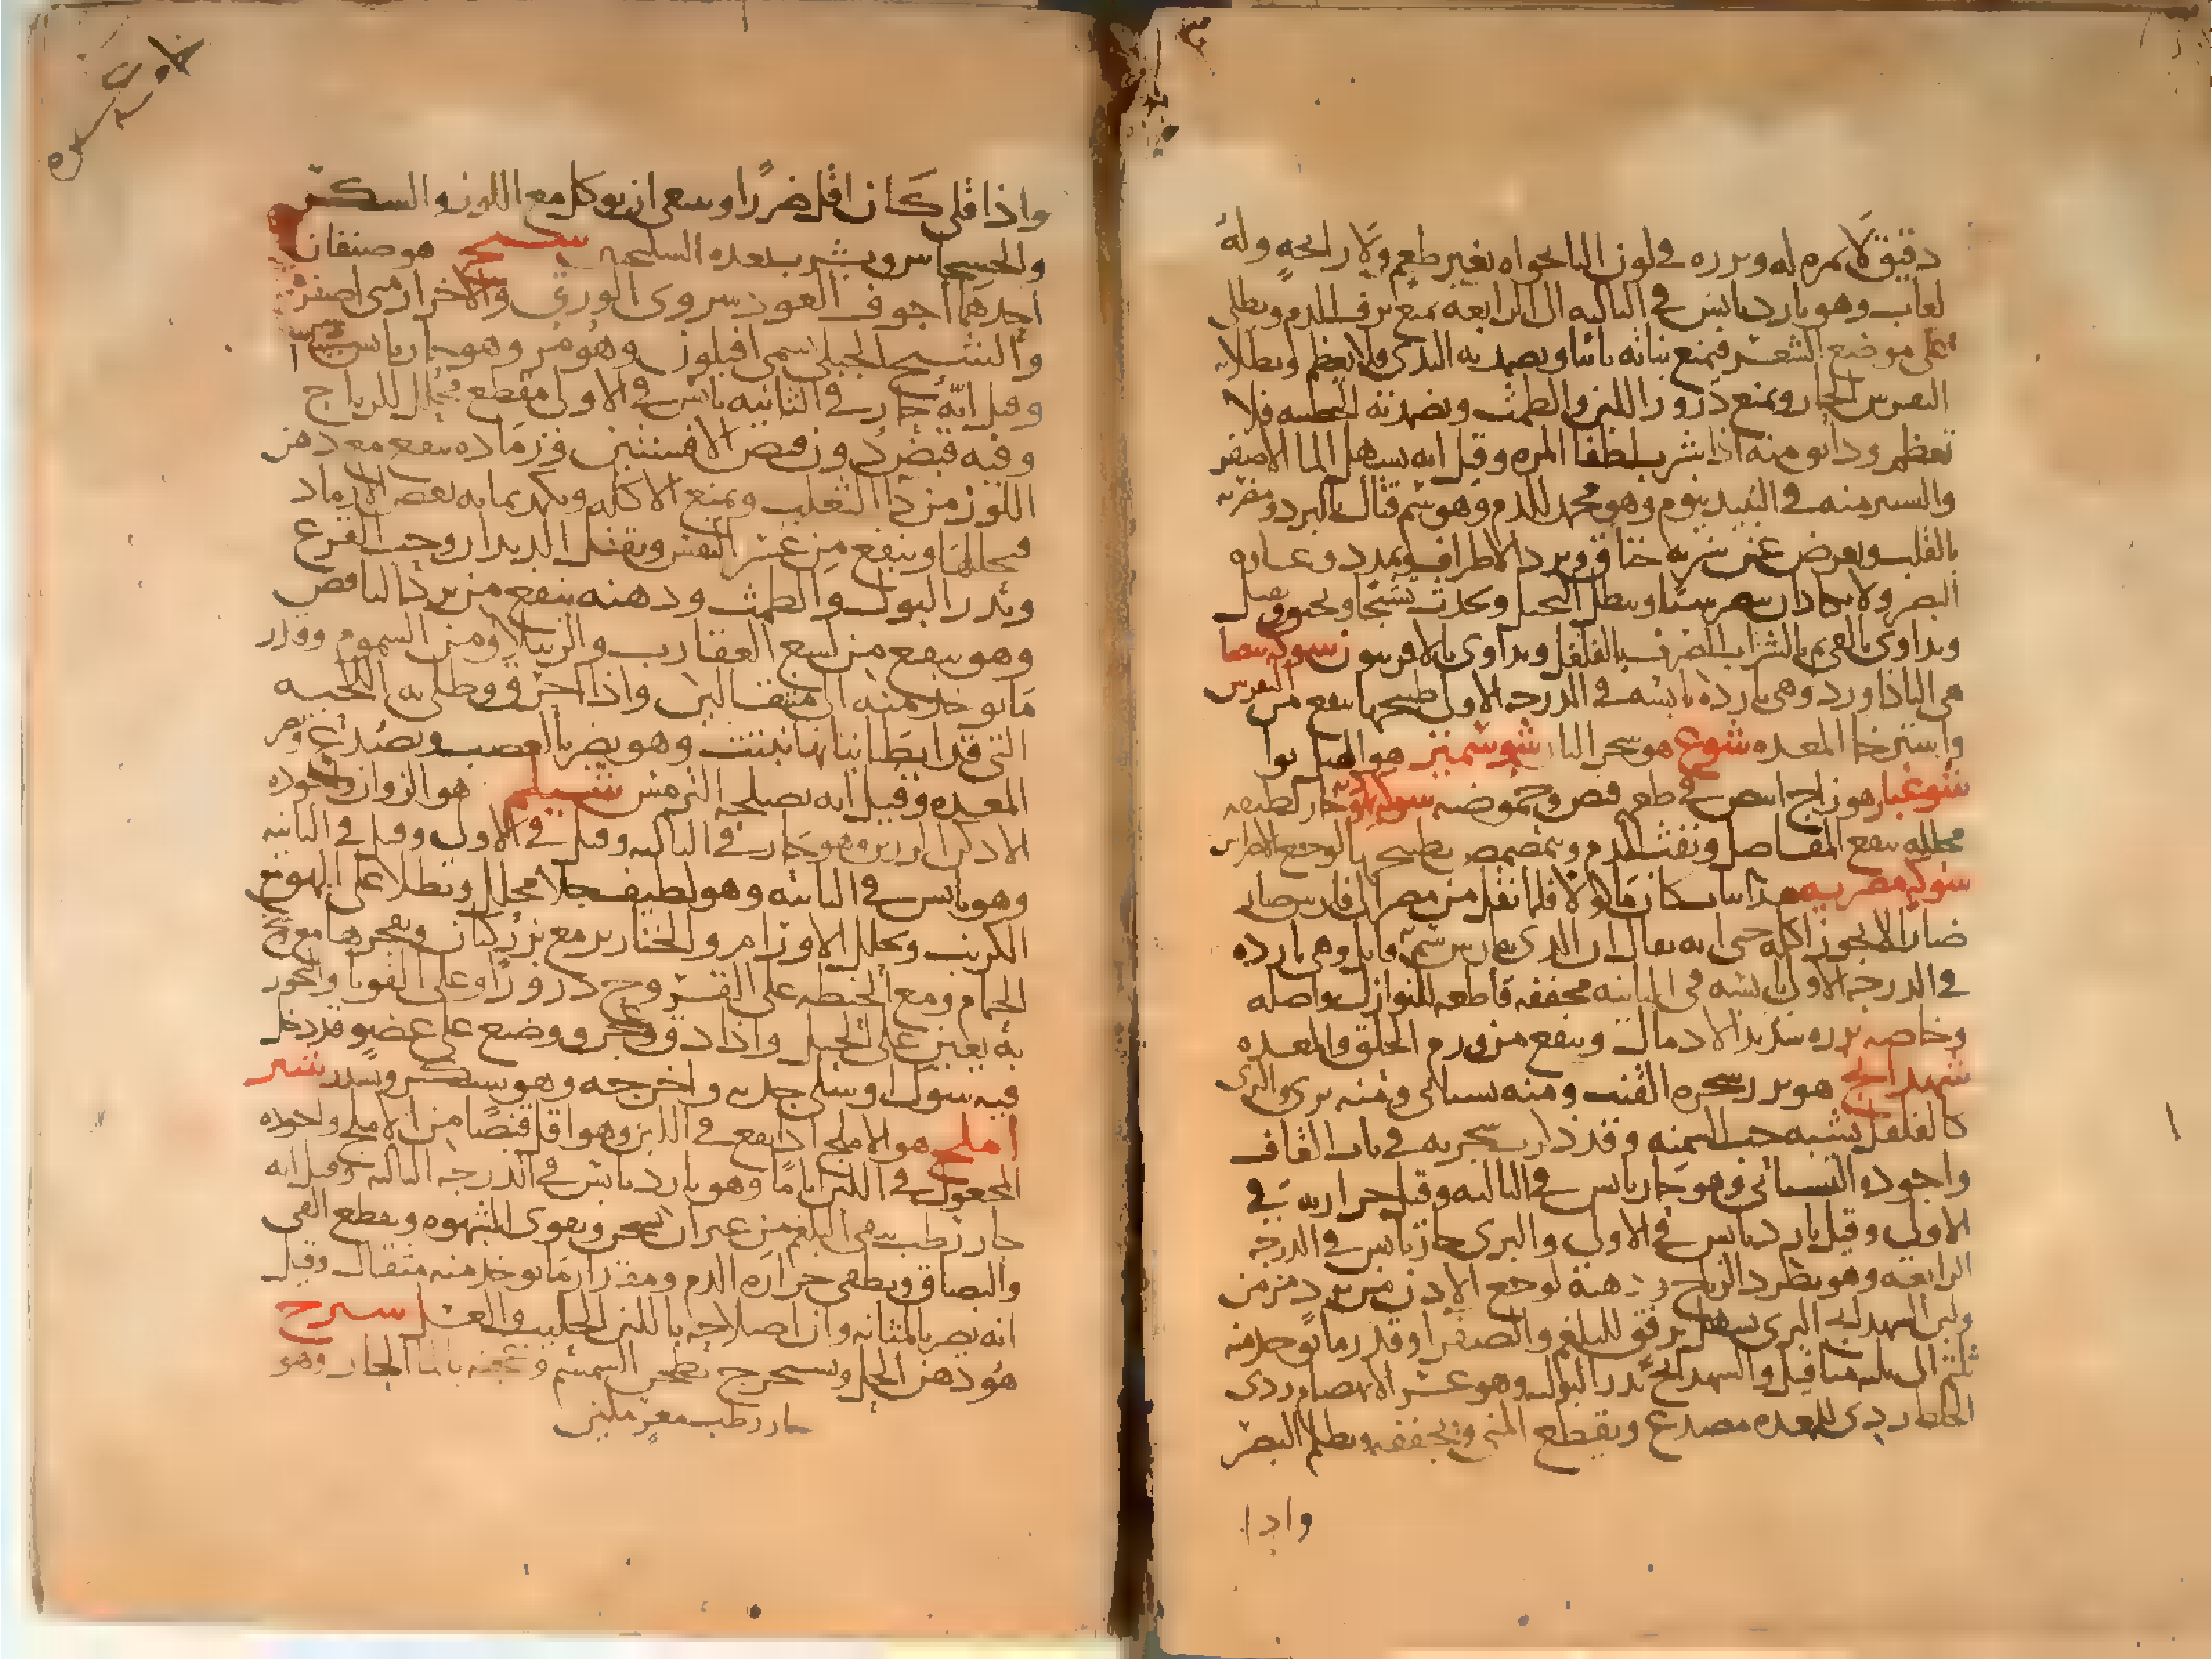 دقيق لا ثمره له وبزره في لون النانخواه بغير طعم ولا رايحة وله
لعاب وهو بارد يابس في الثالثه الى الرابعه يمنع نزف الدم ويطلى
على موضع الشعر فيمنع نباته نباتا ويضمد به الثدى فلا يعظم ويطلا به
النقرس الحار ويمنع درور اللبن والطمث ويضمد به الخصيه فلا
تعظم ودانق منه اذا شرب لطفا المره وقيل انه يسهل الما الاصفر
واليسير منه في النبيذ ينوم وهو مجمد للدم وهو سم قتال بالبرد ومضر
بالقلب ويعرض عن شربه خناق وبرد الاطراف وتمدد وغشاوه
البصر ولا يكاد ان يبصر شيا ويبطل التخيل ويحدث تشنجا
ويداوى بالقيء بالشراب الصرف بالفلفل ويداوى بالافربيون شوكه بيضا
هي الباذاورد وهي بارده يابسه في الدرجه الاولى طبيخها ينفع من النقرس
واسترخا المعده شوع هو شجر البان شوشمير هو الهيل بوا
شوغبار هو زاج ابيض في طعمه قبض وحموضه شوكه حار لطيفه
محلله ينفع المفاصل ونفث الدم ويتمضمض بطبيخها لوجع الاضراس
شوكه مصريه هذا نبات كان مأكولا فلما نقل من مصر الى فارس صار
ضارا لا يجوز اكله حتى انه يقال ان الذى بفارس سم قاتل وهي بارده
في الدرجه الاولى يابسه في الثانيه مجففه قاطعه للنوازل
وخاصه بزره شديد الادمال وينفع من ورم الحلق والمعده
شهدانج هو بزر شجره القنب ومنه بستاني ومنه برى والبرى
كالفلفل يشبه حب السمنه وقد ذكرت شجرته في باب القاف
واجوده البستاني وهو حار يابس في الثالثه وقيل حرارته في
الاولى وقيل بارد يابس في الاولى والبرى حار يابس في الدرجه
الرابعه وهو يطرد الرياح ودهنه لوجع الاذن من برد مزمن
ولبن الشهدانج البرى يسهل برفق للبلغم والصفرا وقدر ما يوخذ منه
ثلثي الى ثلثه مثاقيل والشهدانج يدر البول وهو عسر الانهضام ردى
الخلط ردى للمعده مصدع ويقطع المنى ويجففه ويظلم البصر
واذا
واذا قلى كان اقل ضررا وينبغى ان يوكل مع اللوز والسكر
والخشخاش ويشرب بعده السكنجبين شيح هو صنفان
احدهما اجوف العود سروى الورق والاخر ارمنى اصفر
والشيح الجبلى يسمى افيلون وهو مر وهو حار يابس
وقيل انه حار في الثانيه يابس في الاولى مقطع محلل للرياح
وفيه قبض دون قبض الافسنتين ورماده ينفع مع دهن
اللوز من دا الثعلب ويمنع الاكله ويكمد بمايه بعض الارماد
فيحللها وينفع من عسر النفس ويقتل الديدان وحب القرع
ويدر البول والطمث ودهنه ينفع من برد النافض
وهو ينفع من لسع العقارب والرتيلا ومن السموم وقدر
ما يوخذ منه الى مثقالين واذا احرق وطلى به اللحيه
التي قد ابطا نباتها نبتت وهو يضر بالعصب ويصدع ويضر
المعده وقيل انه يصلحه الترمس شيلم هو الزوان واجوده
وهو حار في الثالثه وقيل في الاولى وقيل في الثانيه
وهو يابس في الثانيه وهو لطيف جلا محلل ويطلا على البهق مع
الكبريت ويحلل الاورام والخنازير مع بزر كتان ويفجرها مع خر
الحمام ومع الحنطه على القروح ذرورا وعلى القوبا والبخور
به يعين على الحبل واذا دق وعجن ووضع على عضو قد دخل
فيه شوك او سلى جذبه واخرجه وهو يسكر ويسدد شير
املج هو الاملج اذا نقع في اللبن وهو اقل قبضا من الاملج واجوده
المجعول في اللبن اياما وهو بارد يابس في الدرجه الثالثه وقيل انه
حار رطب ينقي البلغم من غير ان يسخن ويقوى الشهوه ويقطع القى
والبصاق ويطفى حراره الدم ومقدار ما يوخذ منه مثقال وقيل
انه يضر بالمثانه وان اصلاحه باللبن الحليب والعسل شيرج
هو دهن الحل ويستخرج بطحن السمسم وعجنه بالما الحار وهو
حار رطب مغر ملين